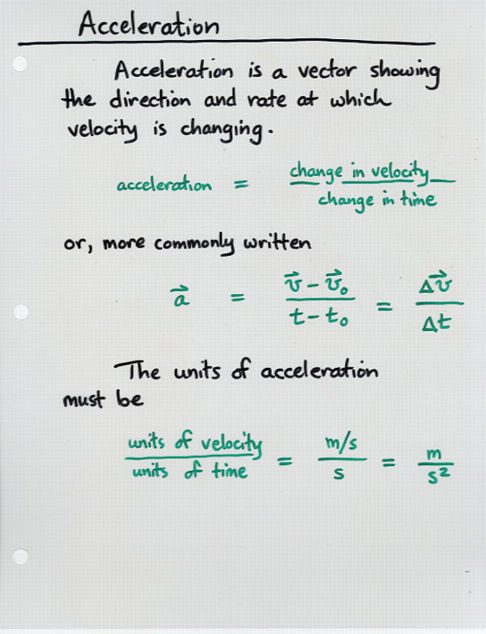 Acceleration
Acceleration is a vector showing
the direction and rate at which
velocity is changing.
acceleration = change in velocity / change in time
or, more commonly written
a⃗ = (v⃗ - v⃗₀) / (t - t₀) = Δv⃗ / Δt
The units of acceleration
must be
units of velocity / units of time = m/s / s = m / s²